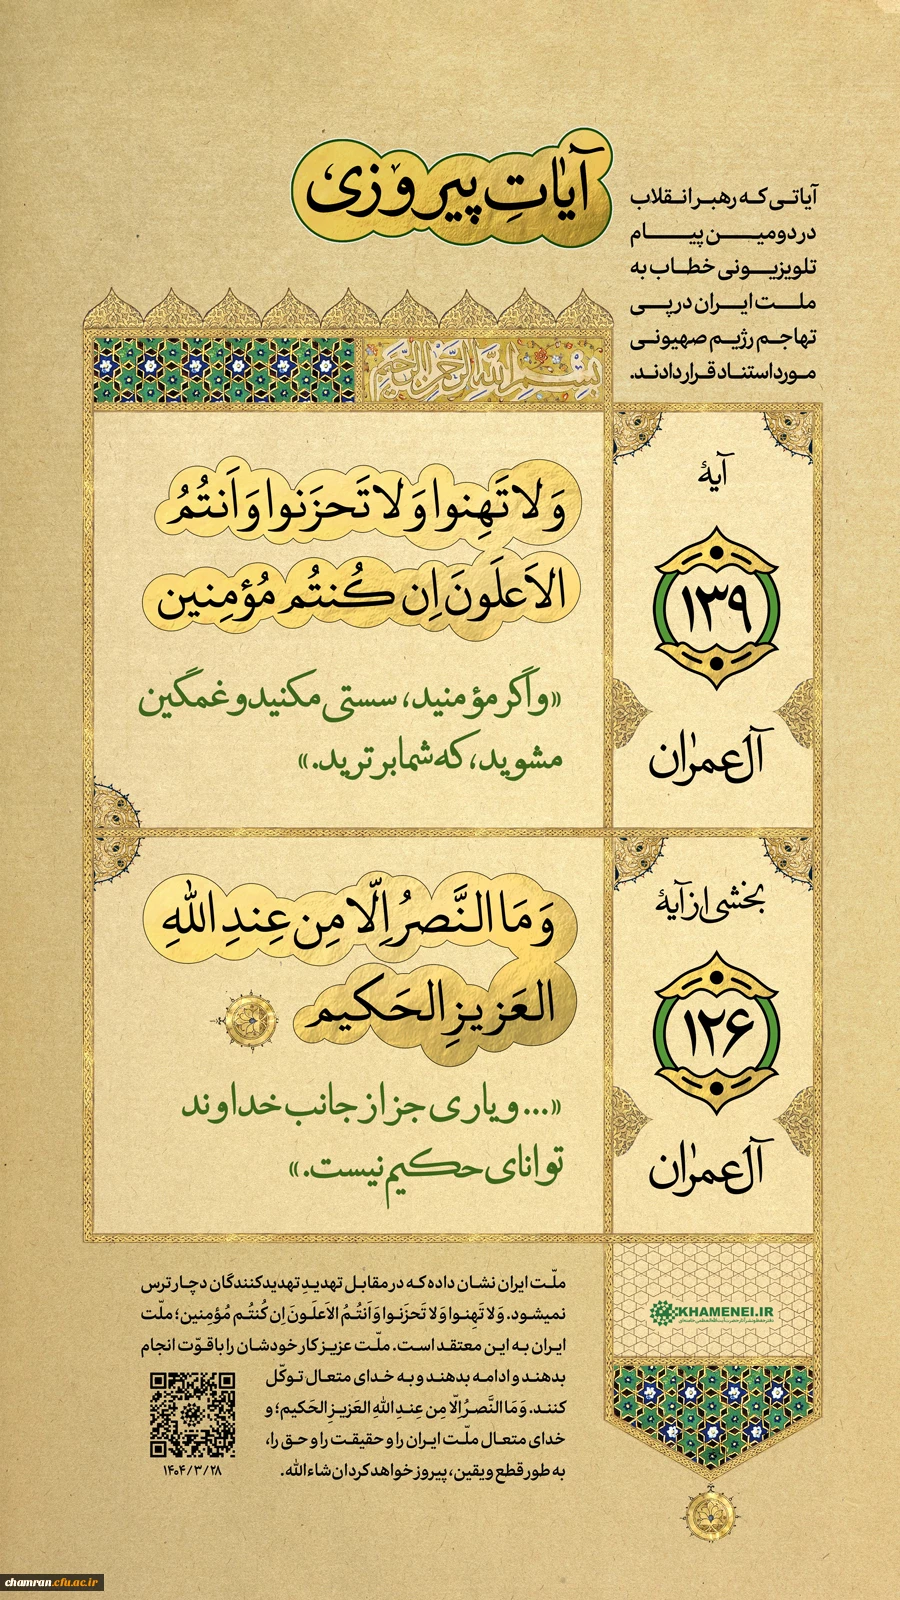 آیاتِ پیروزی
آیاتـی کـه رهبـر انـقلاب
در دومیـــن پیـــام
تلویزیـونی خطـاب به
ملــت ایـــران در پـی
تهاجـم رژیـم صهیونـی
مـورد استنـاد قـرار دادنـد.
بسم الله الرحمن الرحیم
آیهٔ
۱۳۹
آل‌عمران
وَلا تَهِنوا وَلا تَحزَنوا وَاَنتُمُ
الاَعلَونَ اِن کُنتُم مُؤمِنین
«و اگر مؤمنید، سستی مکنید و غمگین
مشوید، که شما برترید.»
بخشی از آیهٔ
۱۲۶
آل‌عمران
وَمَا النَّصرُ اِلّا مِن عِندِ اللهِ
العَزیزِ الحَکیم
«... و یاری جز از جانب خداوند
توانای حکیم نیست.»
KHAMENEI.IR
دفتر حفظ و نشر آثار حضرت آیت‌الله‌العظمی خامنه‌ای
ملّت ایران نشان داده که در مقابل تهدیدِ تهدیدکنندگان دچار ترس
نمیشود. وَلا تَهِنوا وَلا تَحزَنوا وَاَنتُمُ الاَعلَونَ اِن کُنتُم مُؤمِنین؛ ملّت
ایران به این معتقد است. ملّت عزیز کار خودشان را با قوّت انجام
بدهند و ادامه بدهند و به خدای متعال توکّل
کنند. وَمَا النَّصرُ اِلّا مِن عِندِ اللهِ العَزیزِ الحَکیم؛ و
خدای متعال ملّت ایران را و حقیقت را و حق را،
به طور قطع و یقین، پیروز خواهد کرد ان‌شاءالله.
۱۴۰۴/۳/۲۸
chamran.cfu.ac.ir